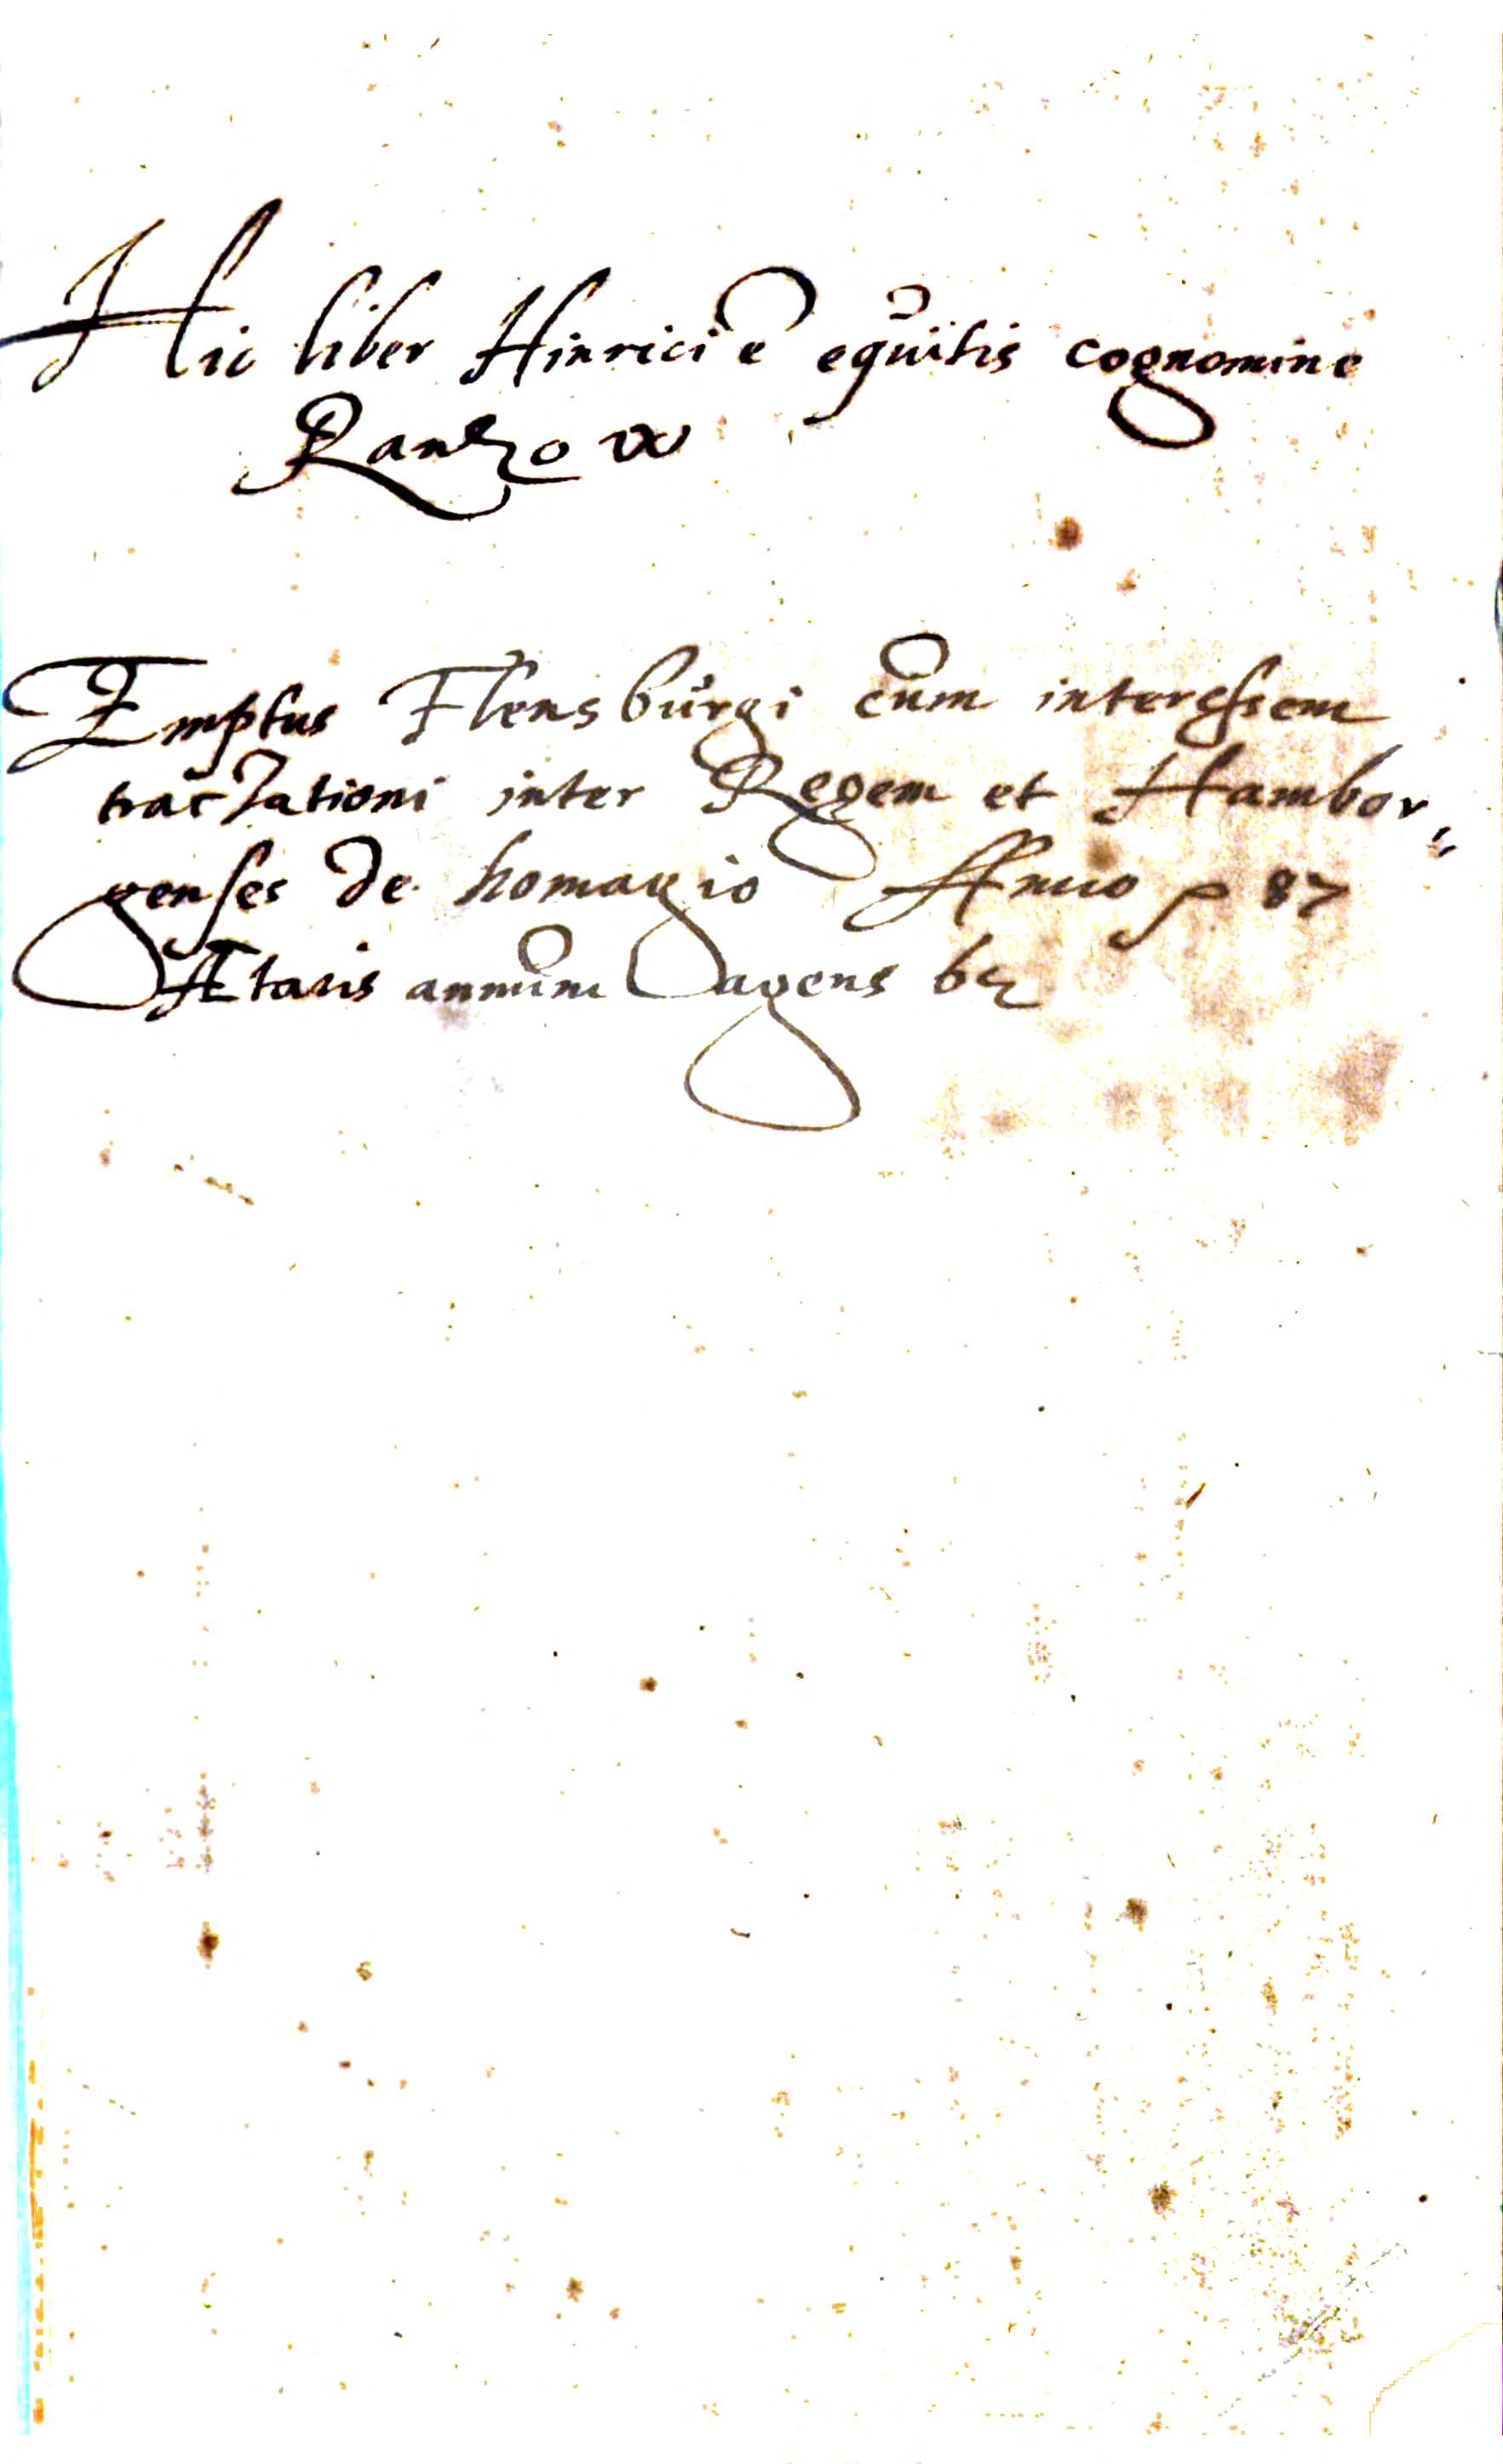 Hic liber Hinrici ē equitis cognomine
Rantzow
Emptus Flensburgi cum interessem
tractationi inter Regem et Hambor„
genses de homagio Anno 87
Ætatis annum agens 62